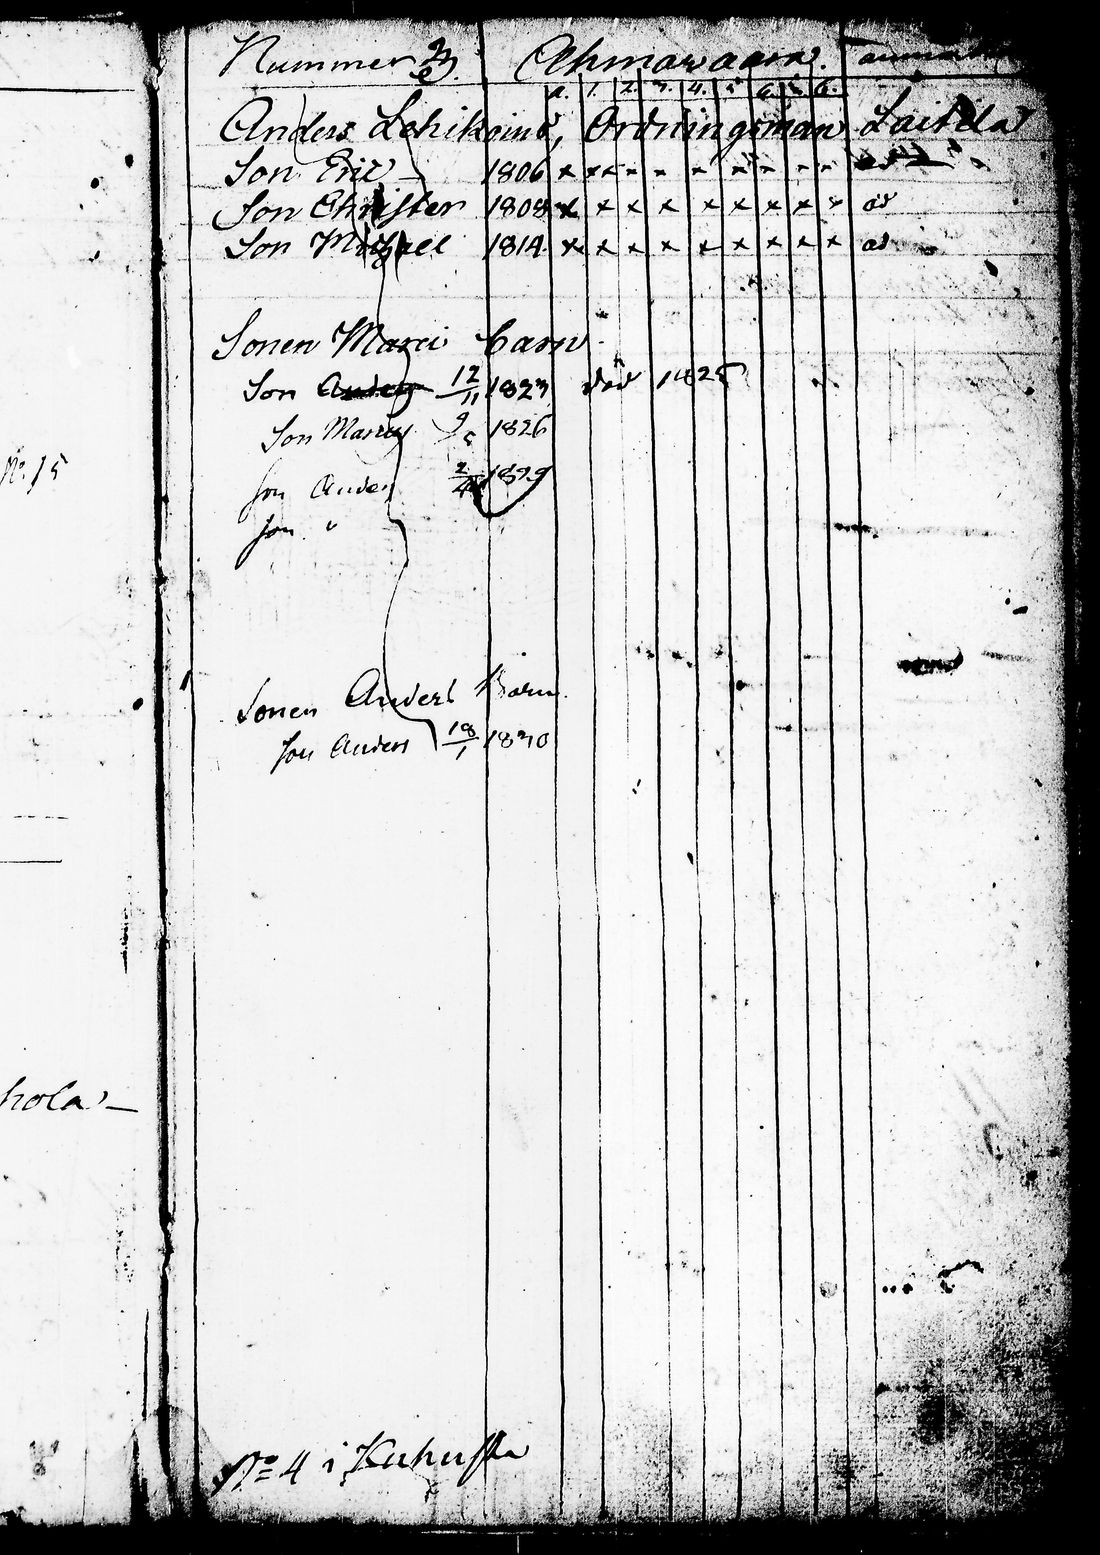 Nummer 3. Ahmawaara.
a. 1. 2. 3. 4. 5 6. 6.
Anders Lehikoinè, Ordningsman Laitila
Son Eric 1806 x x x x x x x x x x
Son Christer 1808 x x x x x x x x x
Son Michael 1814 x x x x x x x x x
Sonen Marci barn
Son Anders 12/11 1823 död 1825
Son Marcus 9/5 1826
Son Anders 2/4 1829
Son "
Sonen Anders Barn.
Son Anders 18/1 1830
No. 15
hola
No 4 i Kuhusta